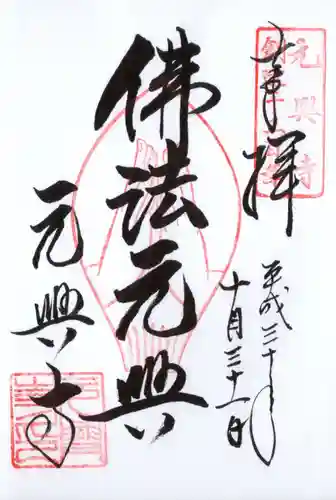 奉拝
元興寺
平成三十年
十月三十一日
佛法元興
元興寺